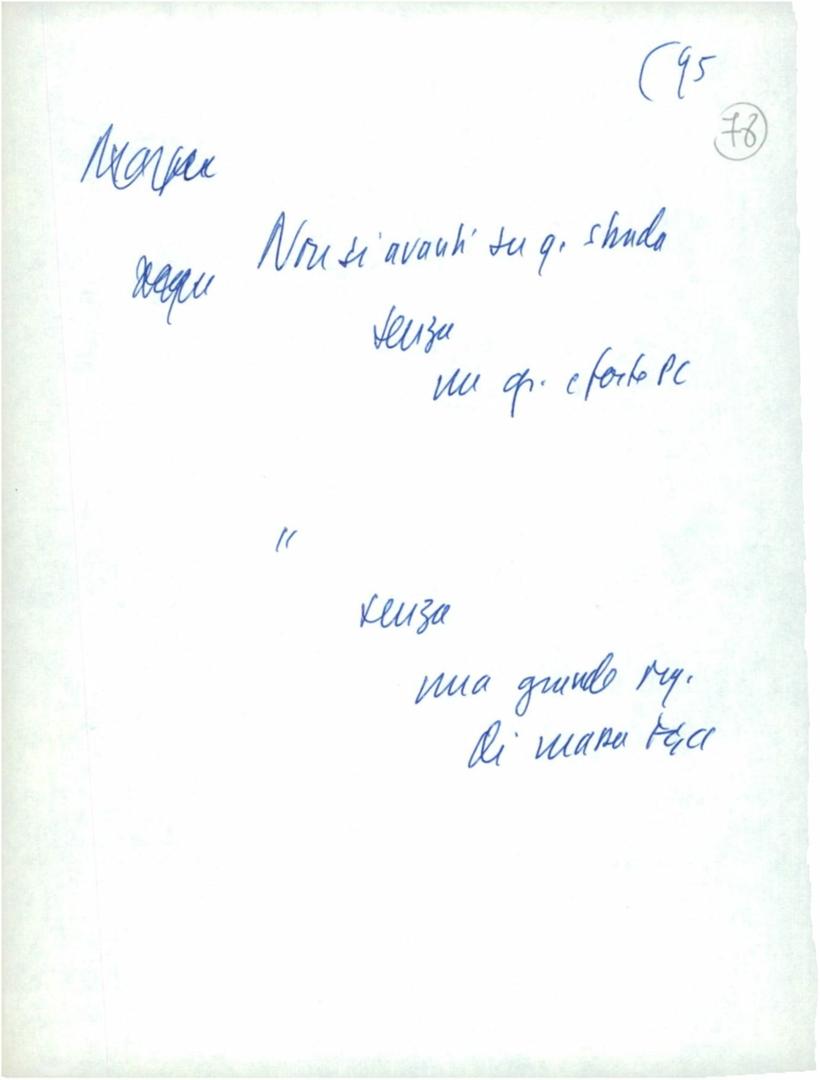 (95
78
Non si avanti su q. strada
senza
un gr. e forte PC
"
senza
una grande org.
di massa